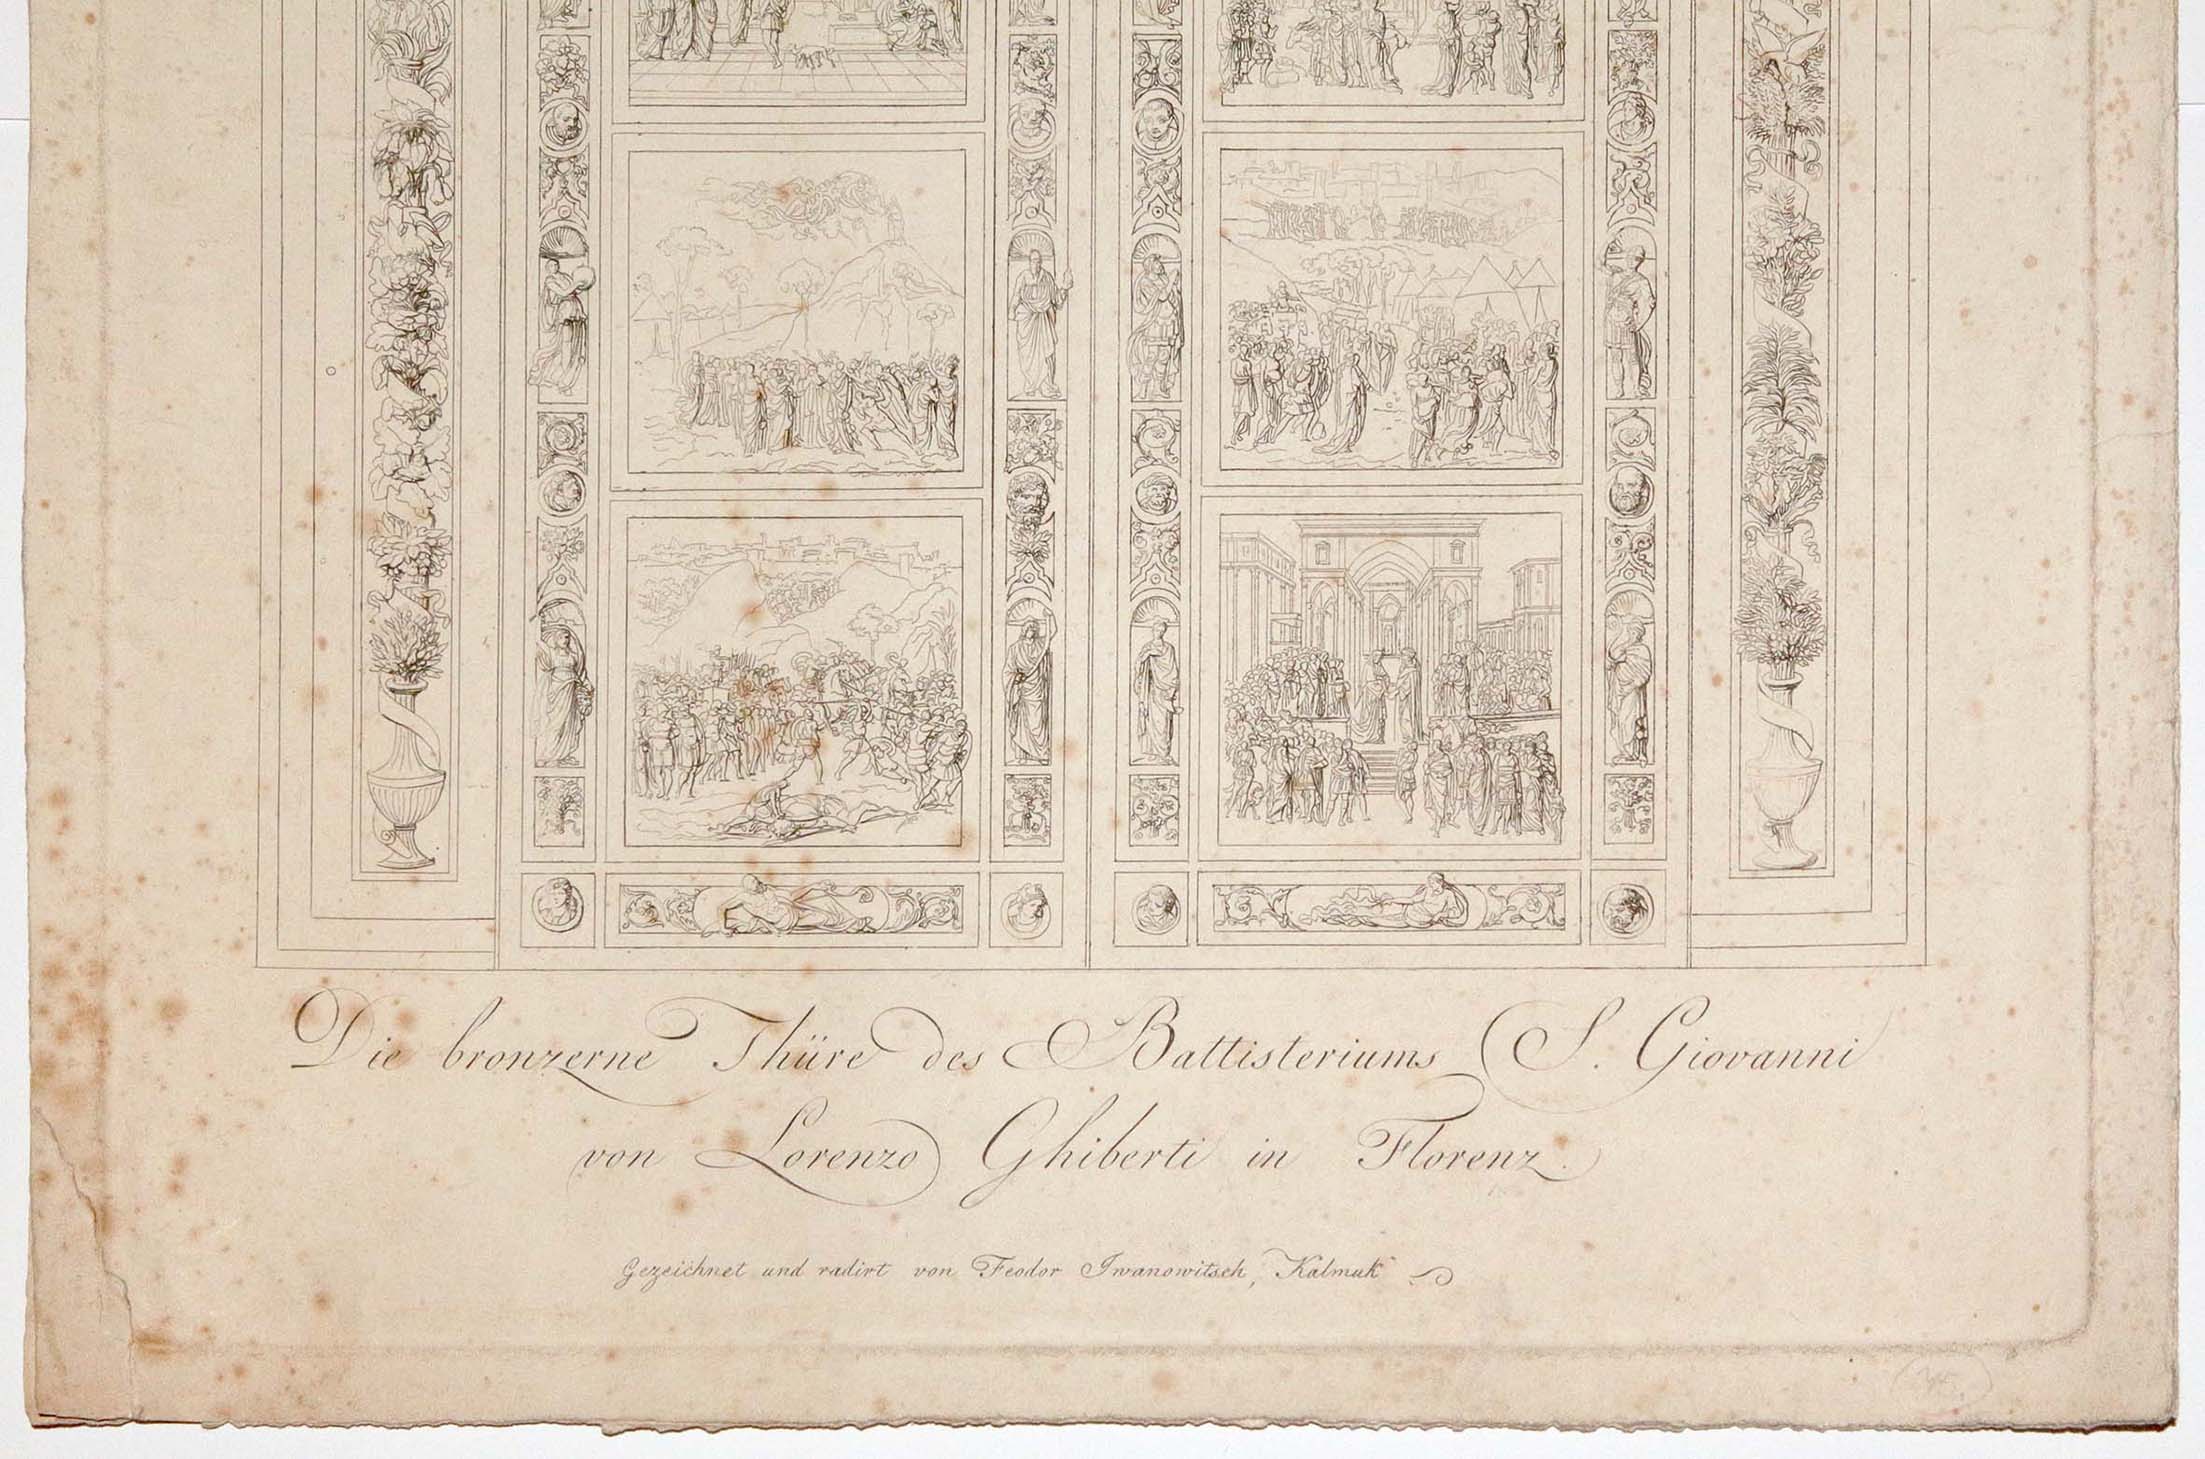 Die bronzerne Thüre des Battisteriums S. Giovanni
von Lorenzo Ghiberti in Florenz.
Gezeichnet und radirt von Feodor Iwanowitsch, Kalmuk